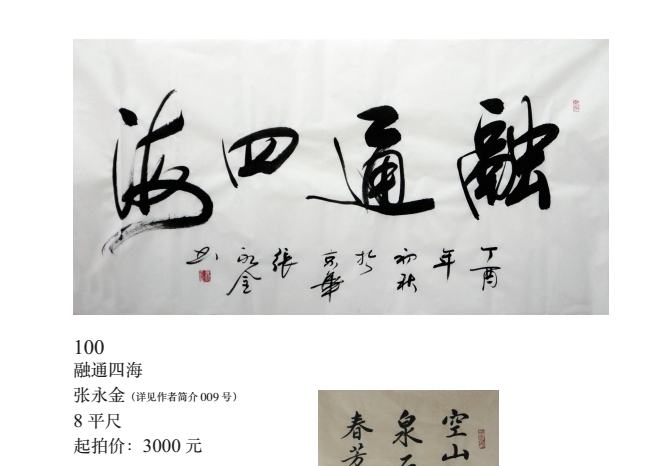 融通四海
丁酉年初秋於京華張永金书
100
融通四海
张永金（详见作者简介 009 号）
8 平尺
起拍价：3000 元
空山
泉石
春芳